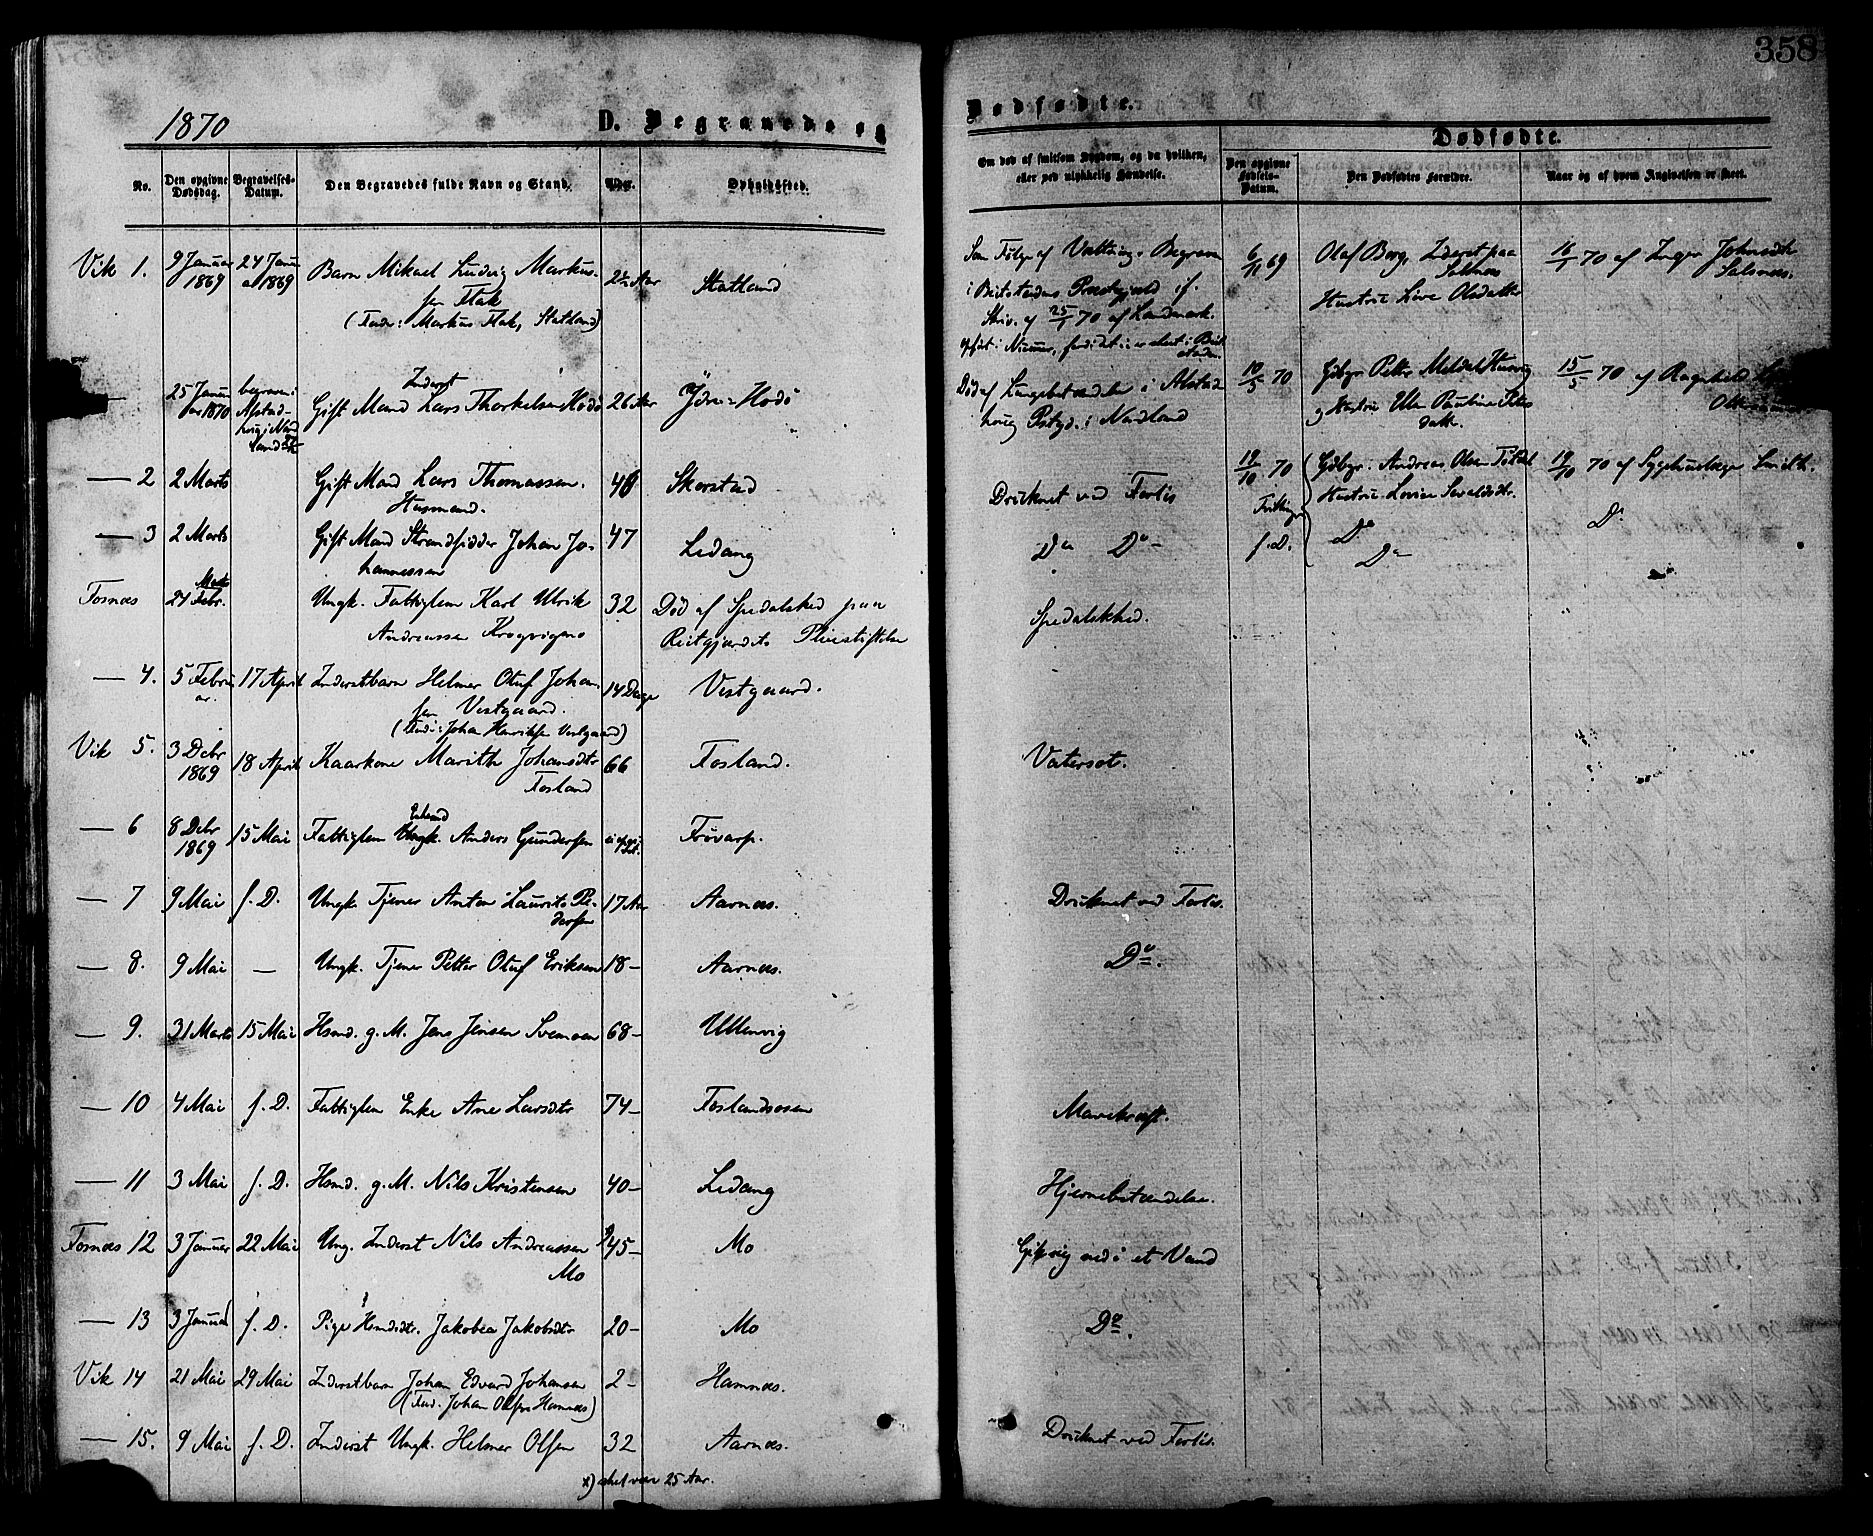 358
1870
D. Begravede og
Dødfødte.
No.
Den opgivne Dødsdag.
Begravelses-Datum.
Den Begravedes fulde Navn og Stand.
Alder.
Opholdssted.
Om død af smitsom Sygdom, og da hvilken,
eller ved ulykkelig Hændelse.
Dødfødte.
Den opgivne Fødsels-Datum.
Den Dødfødtes Forældre.
Naar og af hvem Angivelsen er skeet.
Vik 1. 9 Januar 1869 24 Januar 1869 Barn Mikael Ludvig Markus-
sen Flak
(Fader: Markus Flak, Statland)
2½ Aar Statland
Som Følge af . Begraven
i Beitstadens Præstegjeld if.
Skriv. af 25/1 70 af Landmark.
6/11 69 Olaf Berg, Inderst paa
Salsnes
Hustru Live Olsdatter
16/1 70 af Inger Johnsdtr
Salsnes.
— 25 Januar 1870 begraven i Alstadhoug i Nordland
Inderst
Gift Mand Lars Thorkelsen Hodø 26 Aar Ydre-Hodø
Død af Lungebetændelse i Alstad-
houg Pstgd. i Nordland
10/5 70 Gbgr. Petter Meldal
og Hustru Pauline
datter
15/5 70 af Ragnhild
— 2 2 Marts Gift Mand Lars Thomassen.
Husmand.
Skorstad
Druknet ved Forlis
19/10 70 Tvillinger
Gbgr. Andreas Olsen
Hustru Lovise
19/10 70 af Sygehuslæge Smith.
— 3 2 Marts Gift Mand Strandsidder Johan Jo-
hannessen
47 Ledang
Do Do —
f. D. Do
Do
Do
Fosnes 27 Febr. Marts
Ungk. Fattiglem Karl Ulrik
Andreassen Krogvignes
32 Død af Spedalskhed paa
Reitgjerdets Pleiestiftelse
Spedalskhed.
— 4. 5 Februar. 17 April Inderstbarn Helmer Otuf Johan-
sen Vestgaard.
(Fad: Johan Henriksen Vestgaard)
14 Dage Vestgaard.
Vik 5. 3 Debr 1869 18 April Kaarkone Marith Johansdtr
Fosland
66 Fosland.
Vatersot.
— 6 8 Debr 1869 15 Mai Fattiglem Enkemand Ungk. Anders Gundersen Frøvarp.
— 7 9 Mai f. D. Ungk. Tjener Anton Laurits Pe-
dersen
17 Aar Aarnes.
Druknet ved Forlis.
— 8. 9 Mai — Ungk. Tjener Petter Otuf Eriksen 18 — Aarnes.
Do.
— 9. 31 Marts 15 Mai Hsmd. g. M. Jens Jensen Svemoen 68 — Ullenvig
— 10 4 Mai f. D. Fattiglem Enke Ane Larsdtr 74 — Foslandsosen
Mavekræft.
— 11 3 Mai f. D. Hsmd. g. M. Nils Kristensen 40 — Ledang
Hjernebetændelse.
Fosnes 12 3 Januar 22 Mai Ung. Inderst Nils Andreassen
Mo
45 — Mo
Gik sig ned i et Vand
— 13 3 Januar f. D. Pige Hsmdsdt. Jakobea Jakobsdtr 20 — Mo
Do.
Vik 14 21 Mai 29 Mai Inderstbarn Johan Edvard Johansen
(Fad. Johan Olsen Hamnes)
2 — Hamnes.
— 15. 9 Mai f. D. Inderst Ungk. Helmer Olsen 32 Aarnes.
Druknet ved Forlis.
x) skal være 25 Aar.